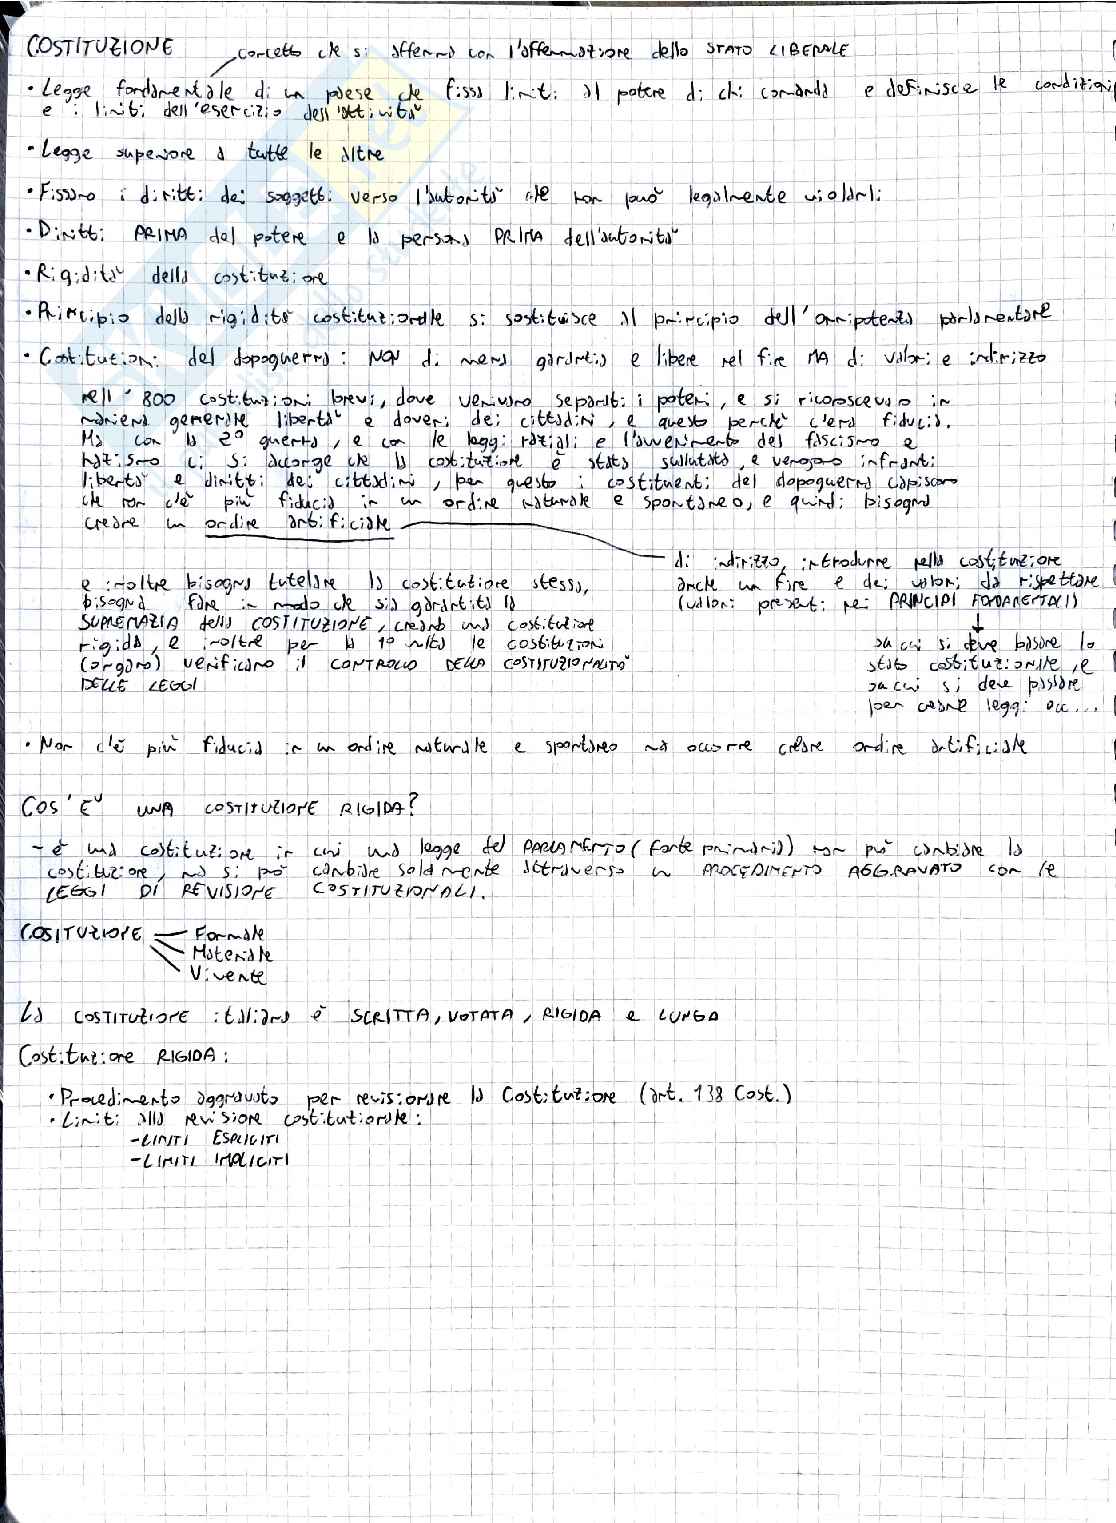 COSTITUZIONE
concetto che si afferma con l'affermazione dello STATO LIBERALE
• Legge fondamentale di un paese che fissa limiti al potere di chi comanda e definisce le condizioni
e i limiti dell'esercizio dell'attività
• Legge superiore a tutte le altre
• Fissano i diritti dei soggetti verso l'autorità che non può legalmente violarli
• Diritti PRIMA del potere e la persona PRIMA dell'autorità
• Rigidità della costituzione
• Principio della rigidità costituzionale si sostituisce al principio dell'onnipotenza parlamentare
• Costituzioni del dopoguerra: NON di mera garantia e libere nel fine MA di valori e indirizzo
nell'800 costituzioni brevi, dove venivano separati i poteri, e si riconoscevano in
maniera generale libertà e doveri dei cittadini, e questo perché c'era fiducia.
Ma con la 2° guerra, e con le leggi raziali e l'avvenimento del fascismo e
nazismo ci si accorge che la costituzione è stata svalutata, e vengono infranti
libertà e diritti dei cittadini, per questo i costituenti del dopoguerra capiscono
che non c'è più fiducia in un ordine naturale e spontaneo, e quindi bisogna
creare un ordine artificiale
di indirizzo, introdurre nella costituzione
anche un fine e dei valori da rispettare
(valori presenti nei PRINCIPI FONDAMENTALI)
su cui si deve basare lo
stato costituzionale, e
su cui si deve passare
per creare leggi ecc...
e inoltre bisogna tutelare la costituzione stessa,
bisogna fare in modo che sia garantita la
SUPREMAZIA della COSTITUZIONE, creando una costituzione
rigida, e inoltre per la 1° volta le costituzioni
(organo) verificano il CONTROLLO DELLA COSTITUZIONALITÀ
DELLE LEGGI
• Non c'è più fiducia in un ordine naturale e spontaneo ma occorre creare ordine artificiale
COS'È UNA COSTITUZIONE RIGIDA?
- è una costituzione in cui una legge del PARLAMENTO (fonte primaria) non può cambiare la
costituzione, ma si può cambiare solamente attraverso un PROCEDIMENTO AGGRAVATO con le
LEGGI DI REVISIONE COSTITUZIONALI.
COSITUZIONE
Formale
Materiale
Vivente
La COSTITUZIONE italiana è SCRITTA, VOTATA, RIGIDA e LUNGA
Costituzione RIGIDA:
• Procedimento aggravato per revisionare la Costituzione (art. 138 Cost.)
• Limiti alla revisione costituzionale:
-LIMITI ESPLICITI
-LIMITI IMPLICITI